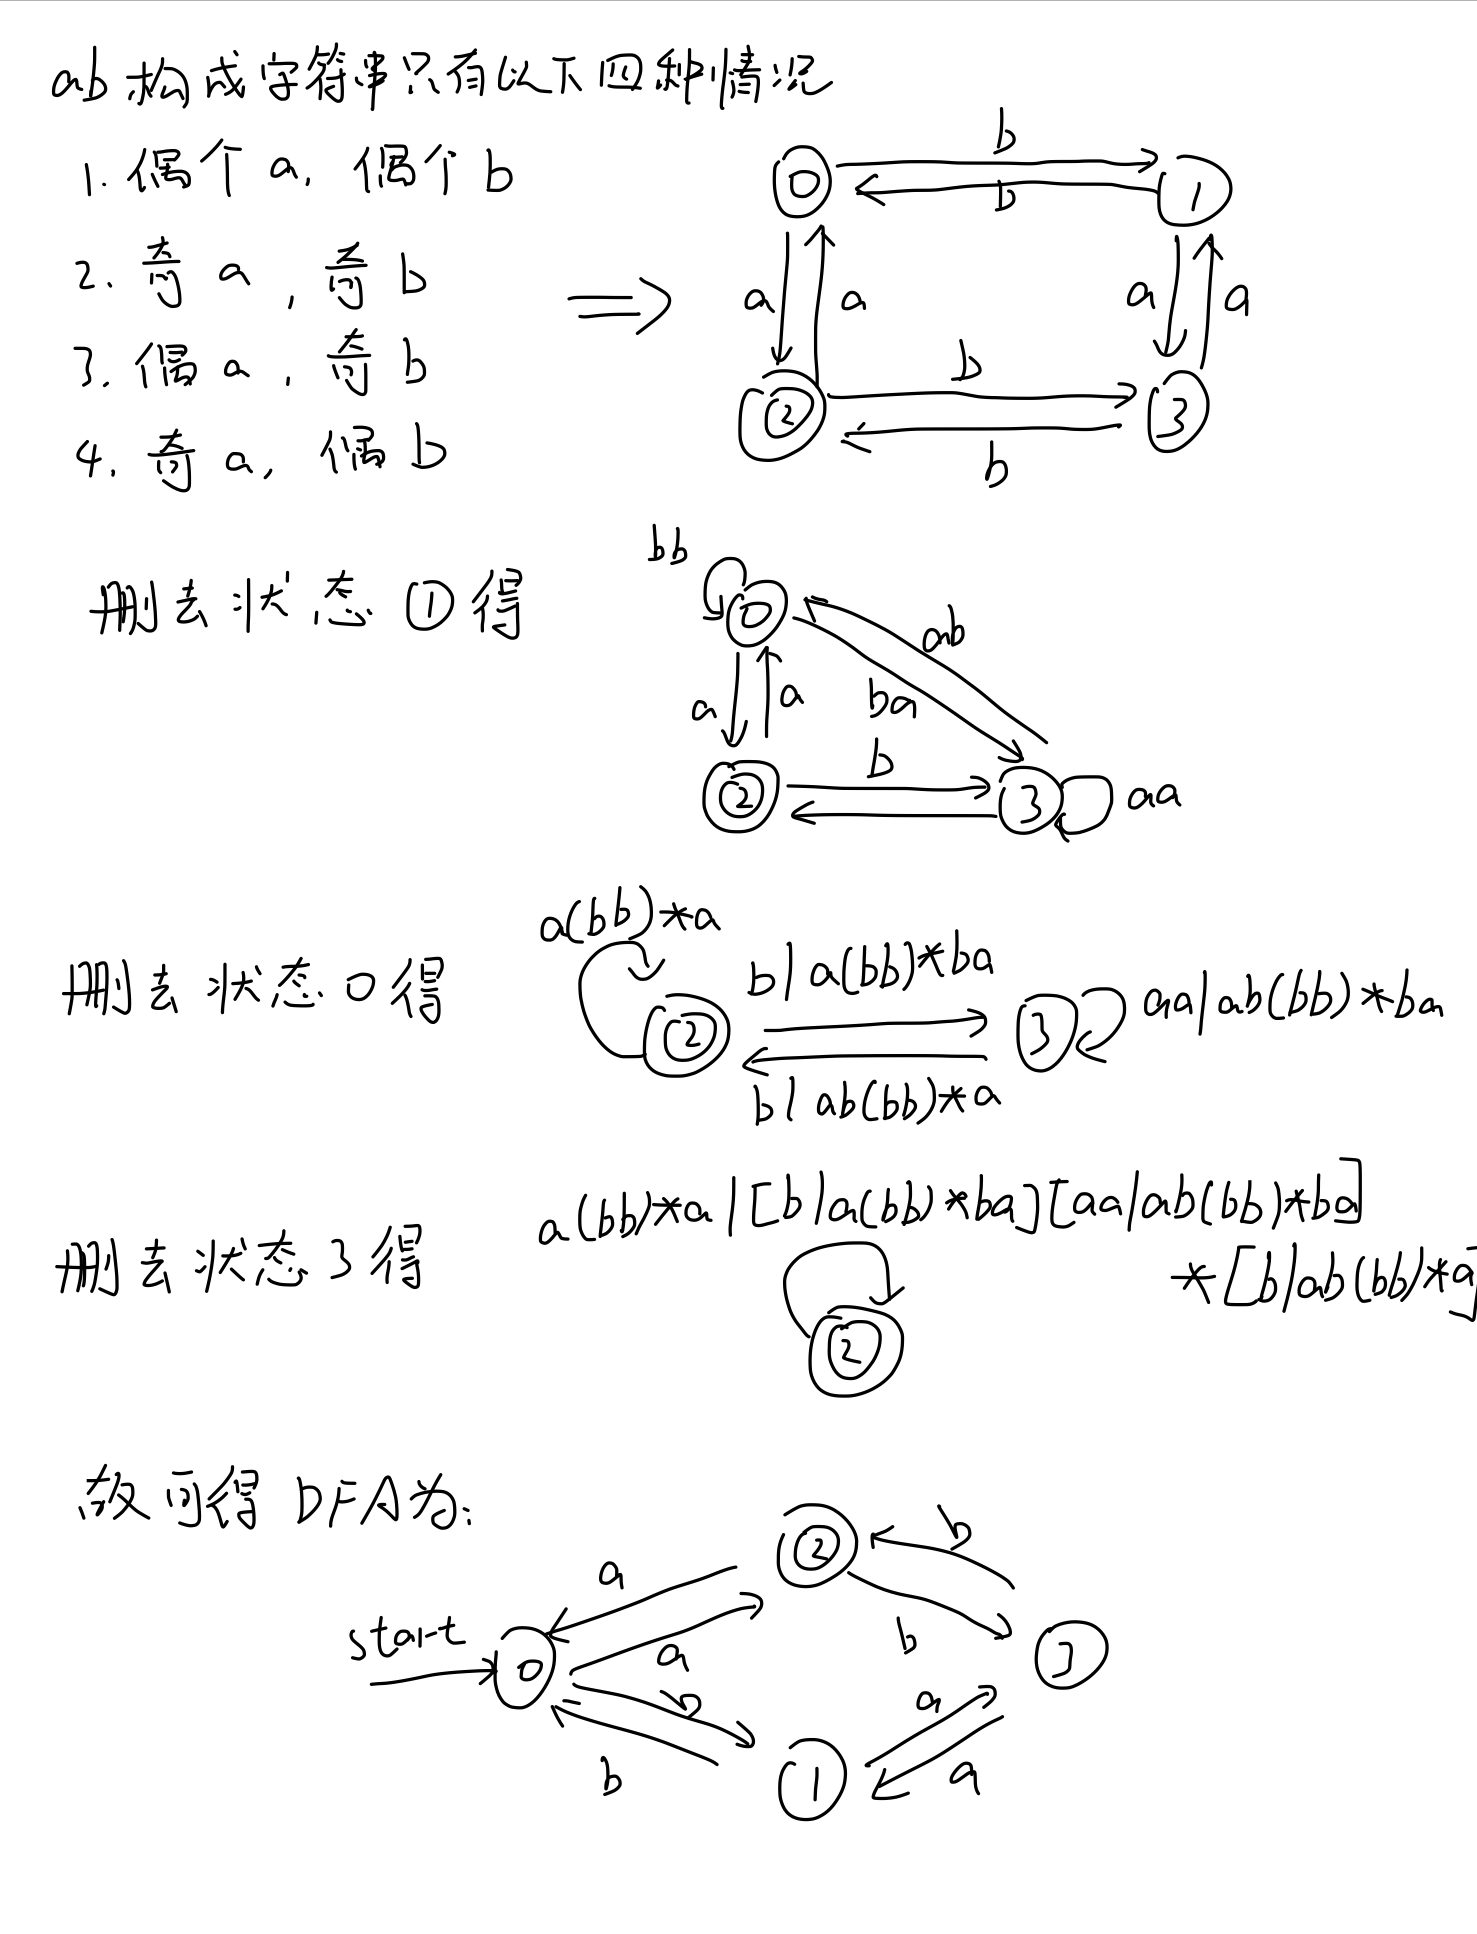 ab构成字符串只有以下四种情况
1. 偶个a, 偶个b
2. 奇a, 奇b
3. 偶a, 奇b
4. 奇a, 偶b
⇒
0 b 1
b
a a a a
2 b 3
b
删去状态①得
bb
0 ab
a a ba
2 b 3 aa
删去状态0得
a(bb)*a
b|a(bb)*ba
2 3 aa|ab(bb)*ba
b|ab(bb)*a
删去状态3得
a(bb)*a|[b|a(bb)*ba][aa|ab(bb)*ba]
*[b|ab(bb)*a]
2
故可得DFA为:
2 b
a
start a b
0 3
b a
b 1 a